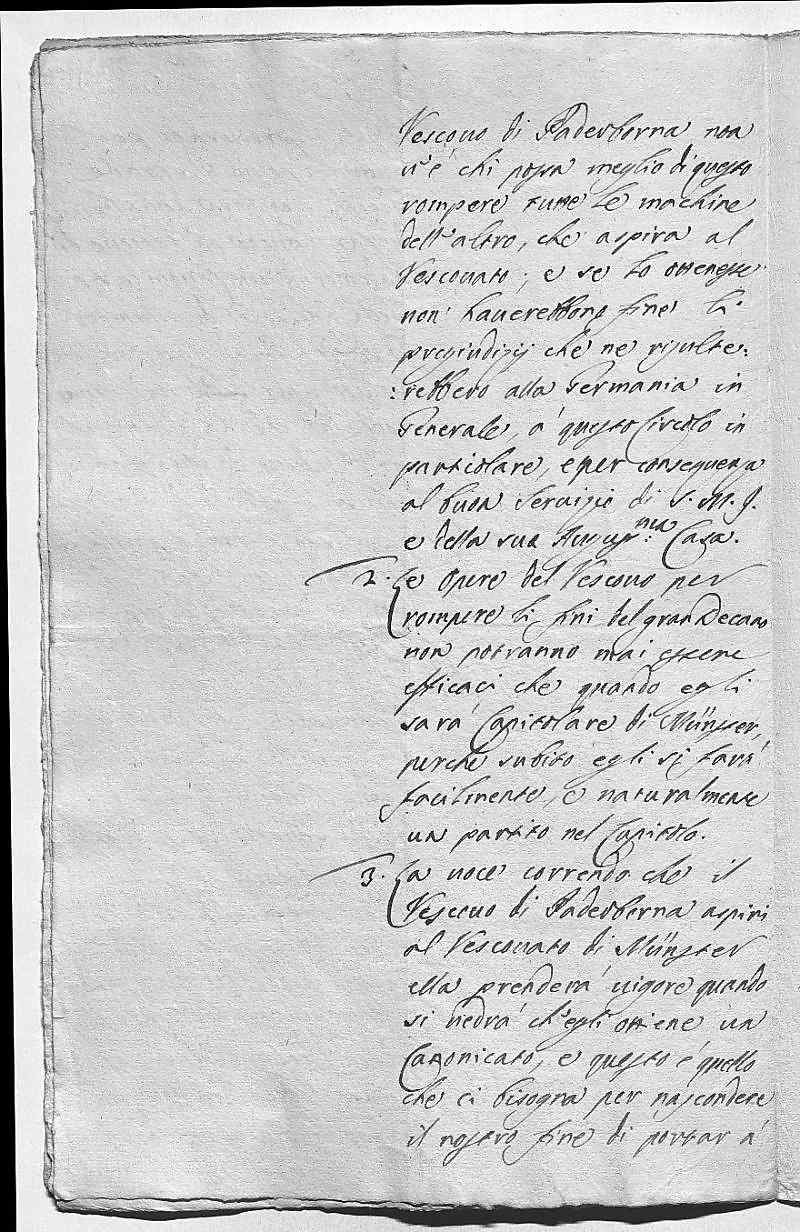 Vescouo di Paderborna non
u'è chi possa meglio di questo
rompere tutte le machine
dell'altro, che aspira al
Vescouato; e se lo ottenesse
non hauerebbono fine li
pregiudizij che ne risulte:
:rebbero alla Germania in
Generale, à questo Circolo in
particolare, e per conseguenza
al buon Seruizio di S. M. J.
e della sua Augus:ma Casa.
2. Le opere del Vescouo per
rompere li fini del gran Decano
non potranno mai essere
efficaci che quando egli
sarà Capitolare di Münster,
perche subito egli si farà
facilmente, e naturalmente
un partito nel Capitolo.
3. La uoce correndo che il
Vescouo di Paderborna aspiri
al Vescouato di Münster
ella prenderà uigore quando
si uedrà ch'egli ottiene un
Canonicato, e questo è quello
che ci bisogna per nascondere
il nostro fine di portar à